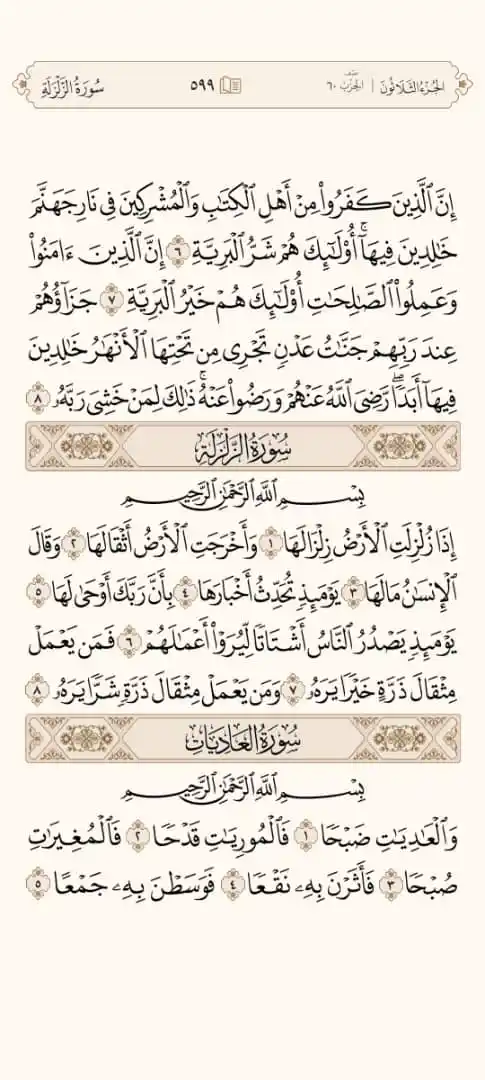 الجزء الثلاثون | الحزب ٦٠
٥٩٩
سورة الزلزلة
إِنَّ ٱلَّذِينَ كَفَرُواْ مِنْ أَهْلِ ٱلْكِتَٰبِ وَٱلْمُشْرِكِينَ فِى نَارِ جَهَنَّمَ
خَٰلِدِينَ فِيهَآۚ أُوْلَٰٓئِكَ هُمْ شَرُّ ٱلْبَرِيَّةِ ٦ إِنَّ ٱلَّذِينَ ءَامَنُواْ
وَعَمِلُواْ ٱلصَّٰلِحَٰتِ أُوْلَٰٓئِكَ هُمْ خَيْرُ ٱلْبَرِيَّةِ ٧ جَزَآؤُهُمْ
عِندَ رَبِّهِمْ جَنَّٰتُ عَدْنٍ تَجْرِى مِن تَحْتِهَا ٱلْأَنْهَٰرُ خَٰلِدِينَ
فِيهَآ أَبَدًاۖ رَّضِىَ ٱللَّهُ عَنْهُمْ وَرَضُواْ عَنْهُۚ ذَٰلِكَ لِمَنْ خَشِىَ رَبَّهُۥ ٨
سُورَةُ الزَّلْزَلَةِ
بِسْمِ ٱللَّهِ ٱلرَّحْمَٰنِ ٱلرَّحِيمِ
إِذَا زُلْزِلَتِ ٱلْأَرْضُ زِلْزَالَهَا ١ وَأَخْرَجَتِ ٱلْأَرْضُ أَثْقَالَهَا ٢ وَقَالَ
ٱلْإِنسَٰنُ مَا لَهَا ٣ يَوْمَئِذٍ تُحَدِّثُ أَخْبَارَهَا ٤ بِأَنَّ رَبَّكَ أَوْحَىٰ لَهَا ٥
يَوْمَئِذٍ يَصْدُرُ ٱلنَّاسُ أَشْتَاتًا لِّيُرَوْاْ أَعْمَٰلَهُمْ ٦ فَمَن يَعْمَلْ
مِثْقَالَ ذَرَّةٍ خَيْرًا يَرَهُۥ ٧ وَمَن يَعْمَلْ مِثْقَالَ ذَرَّةٍ شَرًّا يَرَهُۥ ٨
سُورَةُ العَادِيَاتِ
بِسْمِ ٱللَّهِ ٱلرَّحْمَٰنِ ٱلرَّحِيمِ
وَٱلْعَٰدِيَٰتِ ضَبْحًا ١ فَٱلْمُورِيَٰتِ قَدْحًا ٢ فَٱلْمُغِيرَٰتِ
صُبْحًا ٣ فَأَثَرْنَ بِهِۦ نَقْعًا ٤ فَوَسَطْنَ بِهِۦ جَمْعًا ٥